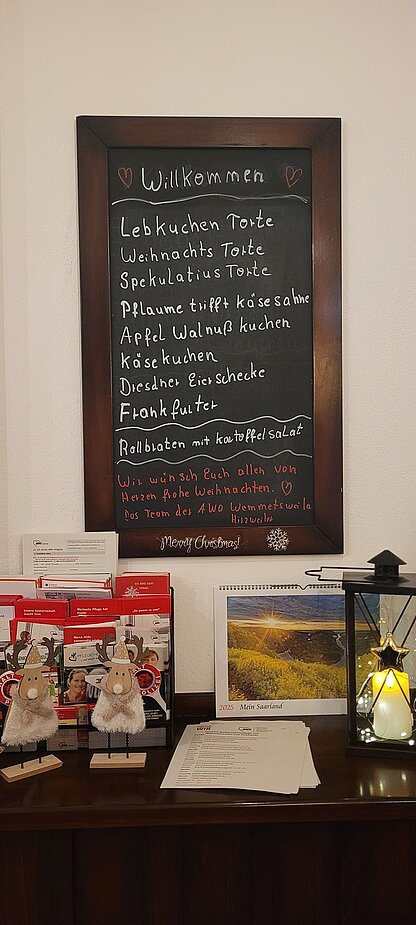 Willkommen
Lebkuchen Torte
Weihnachts Torte
Spekulatius Torte
Pflaume trifft käsesahne
Apfel Walnuß kuchen
Käsekuchen
Dresdner Eierschecke
Frankfurter
Rollbraten mit kartoffelsalat
Wir wünsch Euch allen von
Herzen frohe Weihnachten.
Das Team des AWO Wemmetsweila
Hiizweiler
Merry Christmas!
2025 Mein Saarland